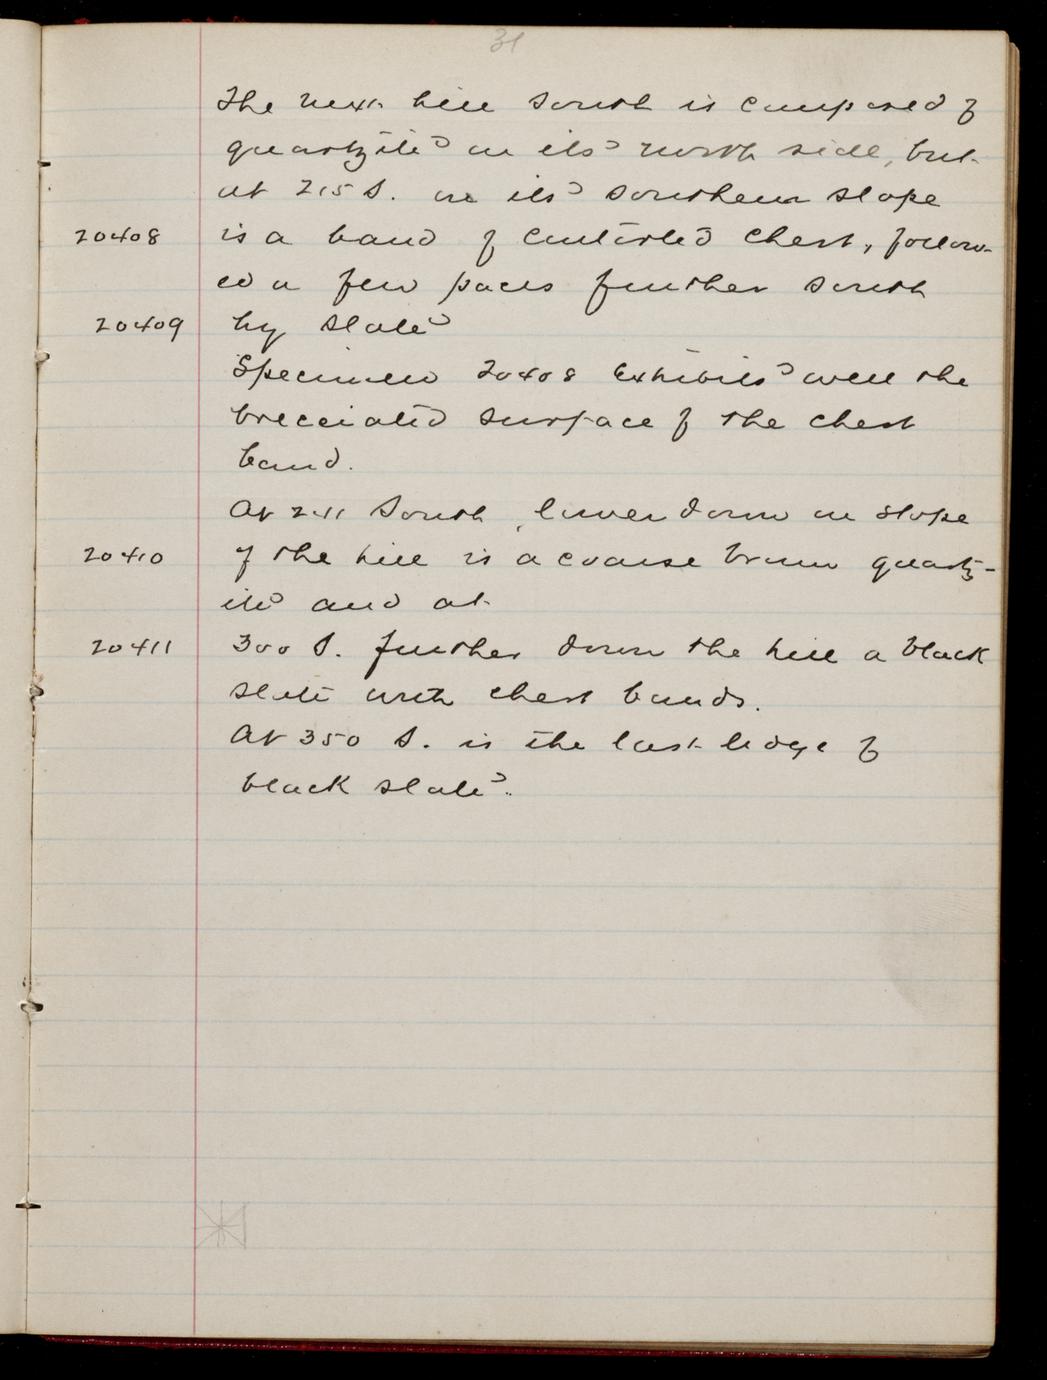 31
The next hill south is composed of
quartzite on its north side, but
at 215 S. on its southern slope
20408 is a band of contorted chert, follow-
ed a few paces further south
20409 by slate
Specimen 20408 exhibits well the
brecciated surface of the chert
band.
At 241 South, lower down on slope
20410 of the hill is a coarse brown quartz-
ite and at
20411 300 S. further down the hill a black
slate with chert bands.
At 350 S. is the last ledge of
black slate.